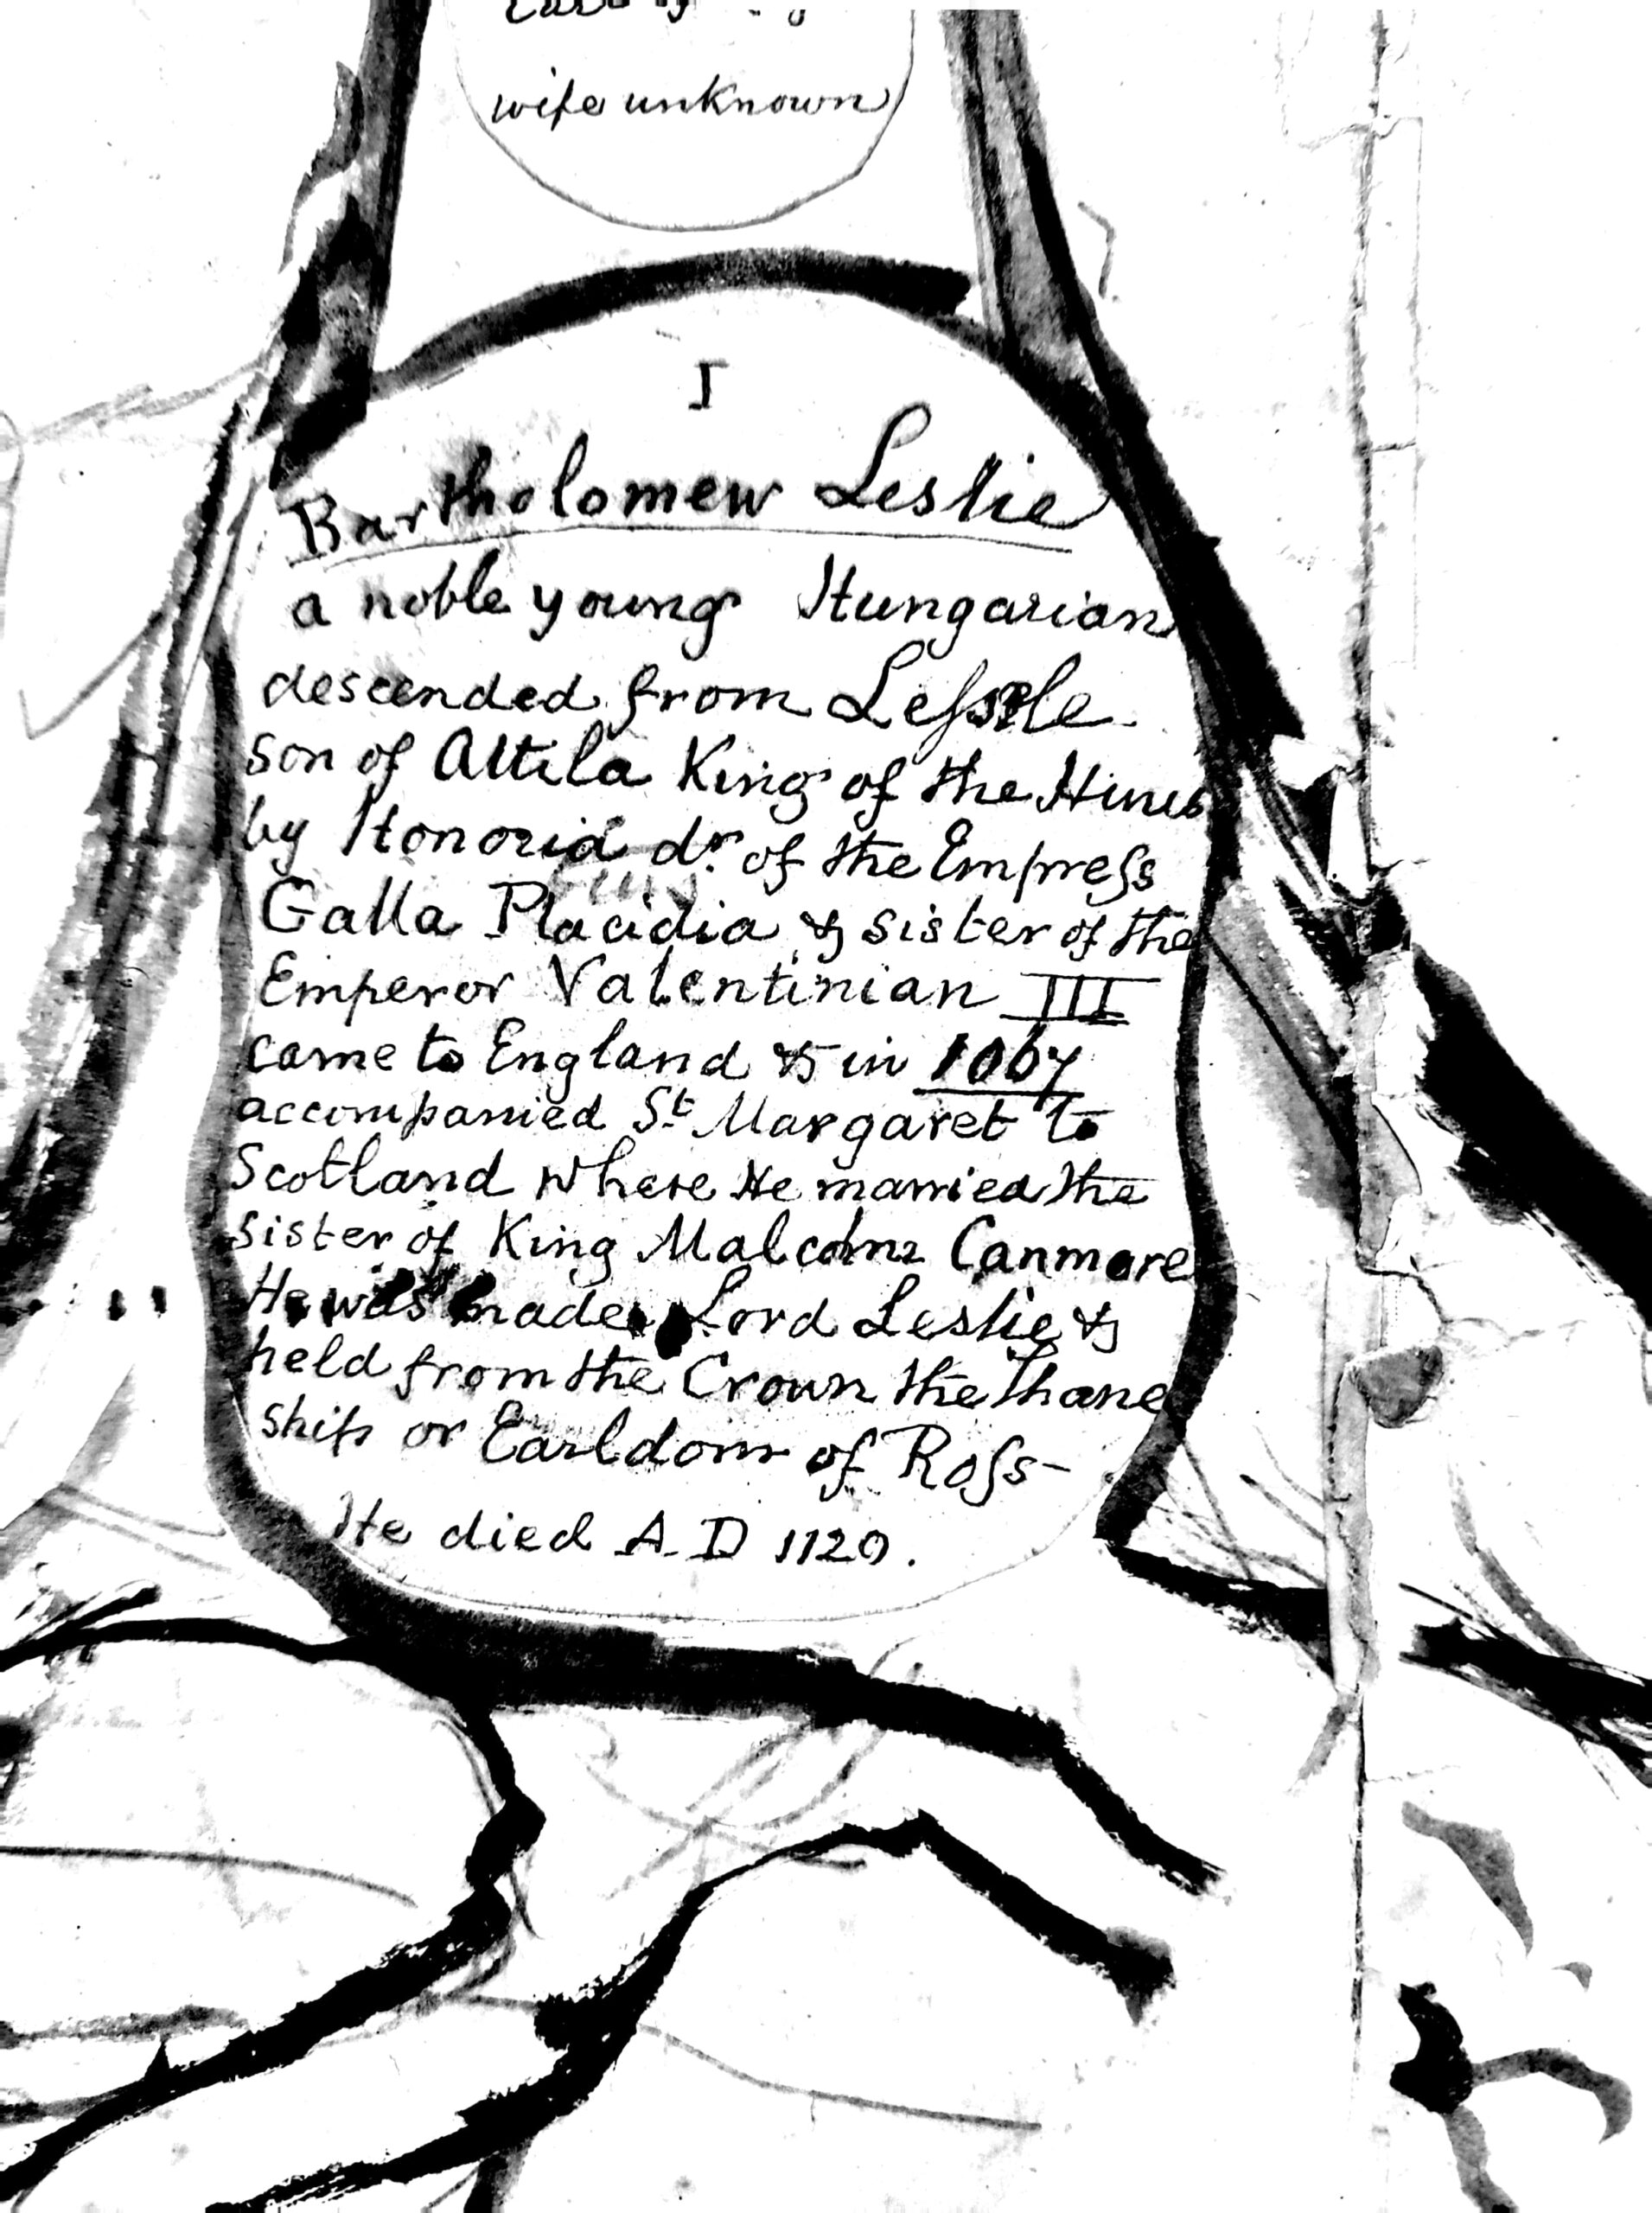 wife unknown
I
Bartholomew Leslie
a noble young Hungarian
descended from
son of Attila King of the Huns
by Honoria dr. of the Empress
Galla Placidia & sister of the
Emperor Valentinian III
came to England & in 1067
accompanied St. Margaret to
Scotland where He married the
sister of King Malcolm Canmore
He was made Lord Leslie &
held from the Crown the Thane
ship or Earldom of Ross-
He died A.D 1120.